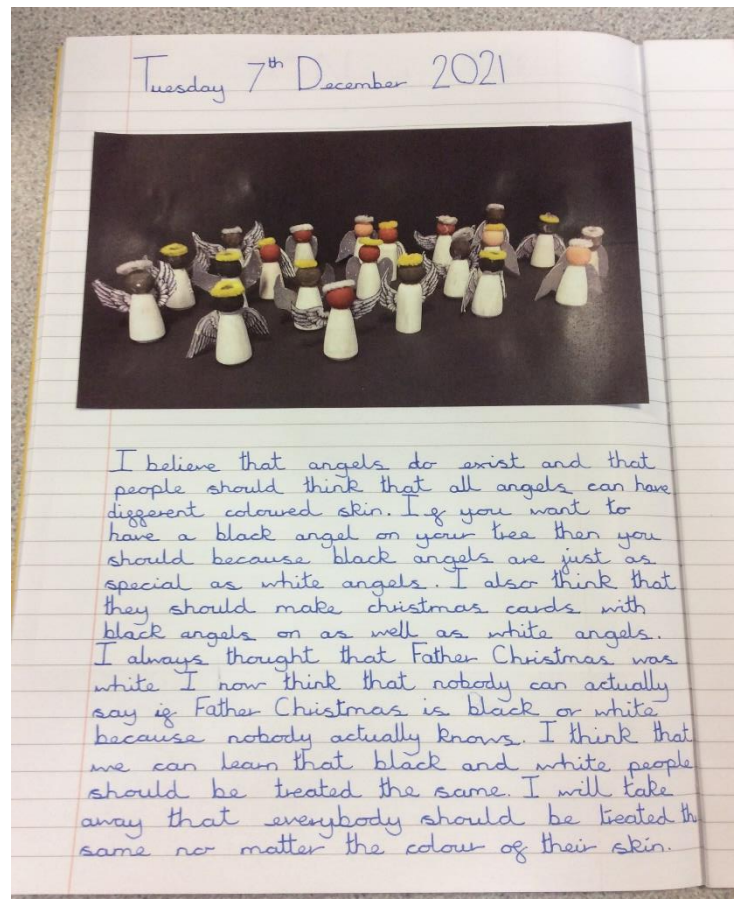 Tuesday 7th December 2021
I believe that angels do exist and that
people should think that all angels can have
different coloured skin. If you want to
have a black angel on your tree then you
should because black angels are just as
special as white angels. I also think that
they should make christmas cards with
black angels on as well as white angels.
I always thought that Father Christmas was
white I now think that nobody can actually
say if Father Christmas is black or white
because nobody actually knows. I think that
we can learn that black and white people
should be treated the same. I will take
away that everybody should be treated the
same no matter the colour of their skin.